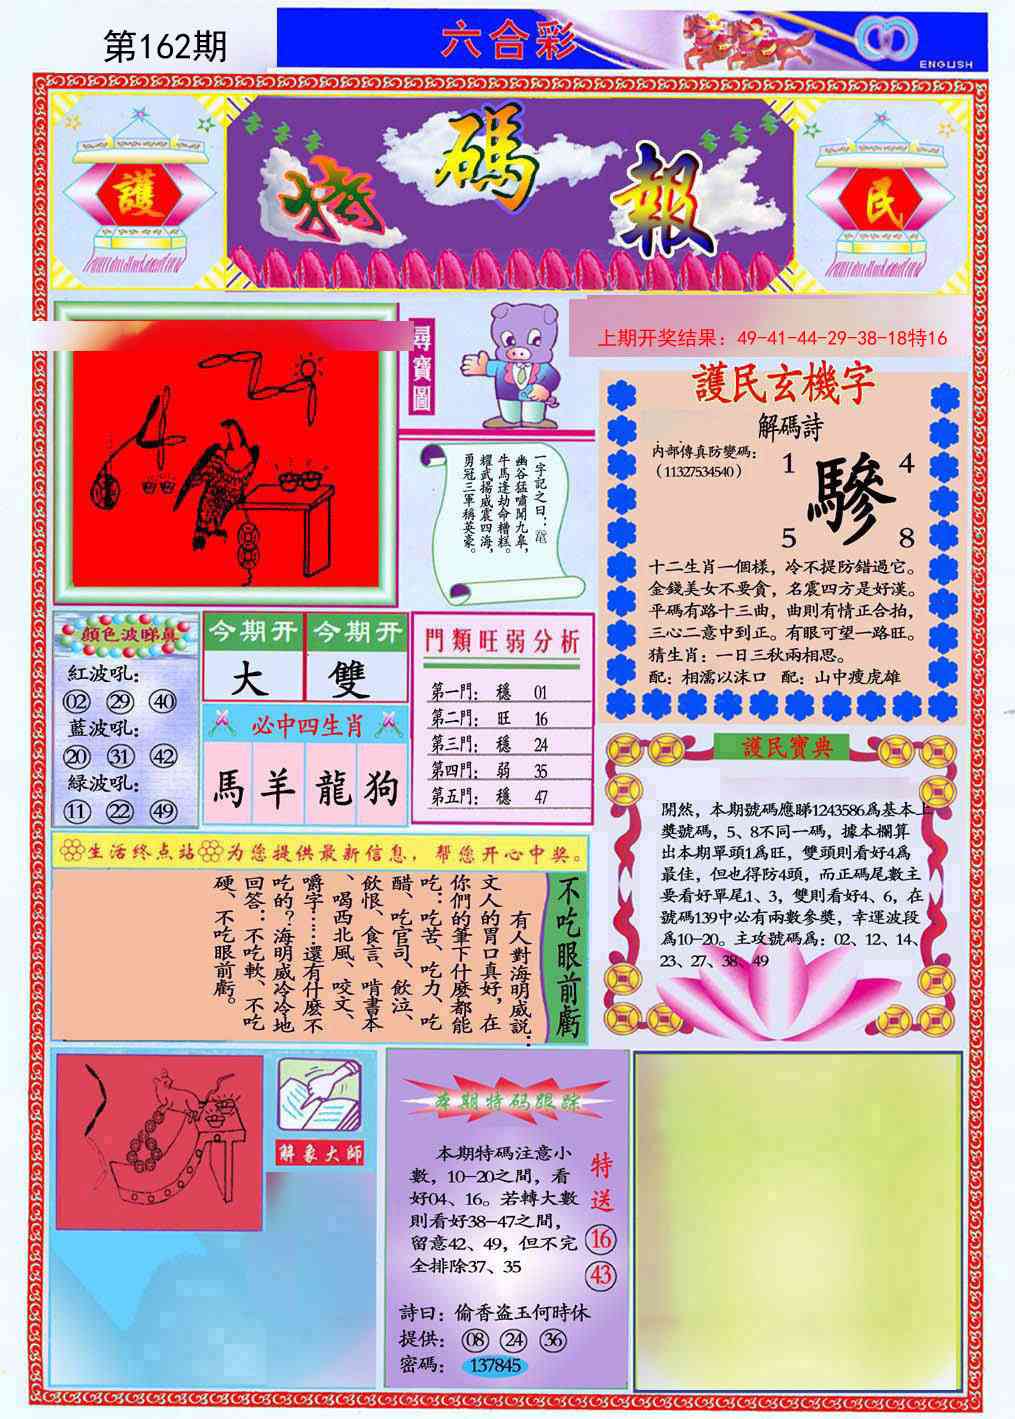 第162期
六合彩
ENGLISH
護
特碼報
民
尋寶圖
上期开奖结果：49-41-44-29-38-18特16
一字記之曰：
幽谷猛嘯聞九皋，
牛馬逢劫命糟糕。
耀武揚威震四海，
勇冠三軍稱英豪。
護民玄機字
解碼詩
内部傳真防變碼：
（11327534540）
1
4
驂
5
8
十二生肖一個樣，冷不提防錯過它。
金錢美女不要貪，名震四方是好漢。
平碼有路十三曲，曲則有情正合拍，
三心二意中到正。有眼可望一路旺。
猜生肖：一日三秋兩相思。
配：相濡以沫口 配：山中瘦虎雄
顏色波睇真
紅波吼：
02 29 40
藍波吼：
20 31 42
緑波吼：
11 22 49
今期开
大
今期开
雙
必中四生肖
馬 羊 龍 狗
門類旺弱分析
第一門： 穩 01
第二門： 旺 16
第三門： 穩 24
第四門： 弱 35
第五門： 穩 47
護民寶典
開然，本期號碼應睇1243586爲基本上
獎號碼，5、8不同一碼，據本欄算
出本期單頭1爲旺，雙頭則看好4爲
最佳，但也得防4頭，而正碼尾數主
要看好單尾1、3，雙則看好4、6，在
號碼139中必有兩數參獎，幸運波段
爲10-20。主攻號碼爲：02、12、14、
23、27、38、49
生活终点站 为您提供最新信息，帮您开心中奖。
不吃眼前虧
有人對海明威説：
文人的胃口真好，在
你們的筆下什麽都能
吃：吃苦、吃力、吃
醋、吃官司、飲泣、
飲恨、食言、啃書本
、喝西北風、咬文、
嚼字……還有什麽不
吃的？海明威冷冷地
回答：不吃軟、不吃
硬、不吃眼前虧。
解象大師
本期特码跟踪
本期特码注意小
數，10-20之間，看
好04、16。若轉大數
則看好38-47之間，
留意42、49，但不完
全排除37、35
特送
16
43
詩曰：偷香盗玉何時休
提供： 08 24 36
密碼： 137845